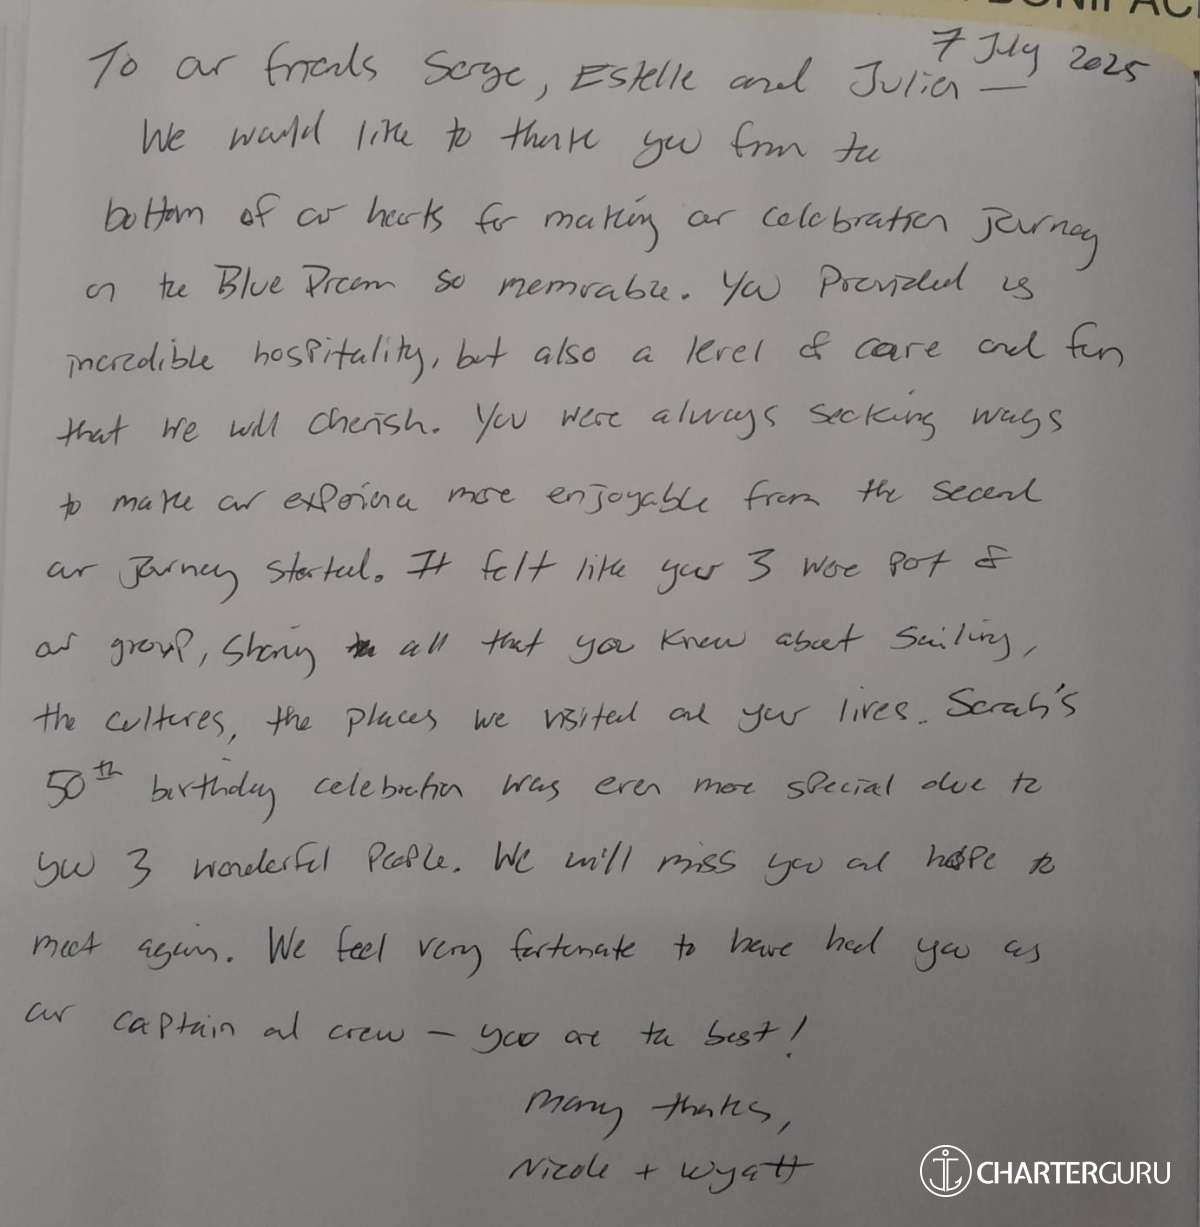 BONIFAC
7 July 2025
To our friends Serge, Estelle and Julien —
We would like to thank you from the
bottom of our hearts for making our celebration journey
on the Blue Dream so memorable. You provided us
incredible hospitality, but also a level of care and fun
that we will cherish. You were always seeking ways
to make our experience more enjoyable from the second
our journey started. It felt like you 3 were part of
our group, sharing all that you knew about sailing,
the cultures, the places we visited and your lives. Sarah's
50th birthday celebration was even more special due to
you 3 wonderful people. We will miss you and hope to
meet again. We feel very fortunate to have had you as
our captain and crew — you are the best!
Many thanks,
Nicole + Wyatt
CHARTERGURU